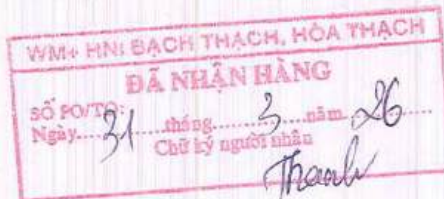 WM+ HNI BẠCH THẠCH, HÒA THẠCH
ĐÃ NHẬN HÀNG
SỐ PO/TO:
Ngày....31....tháng....3....năm....26
Chữ ký người nhân
Thanh